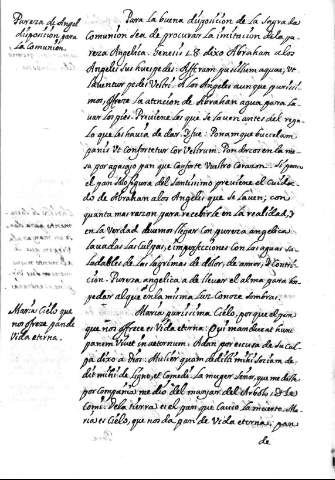 Pureza de Angel
disposición para
la Comunion.
Para la buena disposicion de la Sagrada
Comunion se a de procurar la imitacion de la pu-
reza Angelica. Genesis 18 dixo Abraham a los
Angeles sus huespedes: Afferam pusillum aquae, et
laventur pedes vestri. A los Angeles aunque purissi-
mos, ofrece la atencion de Abraham agua para la-
var los pies. Previene les que se laven antes del rega-
lo que les havia de dar. Ponamque buccelam
panis et confortetur Cor vestrum. Pondreos en la me-
sa por agasajo pan que conforte vuestro Corazon. Si para
el pan solo figura del Santissimo previene el Cuida-
do de Abraham a los Angeles que se laven; con
quanta mas razon para recebirle en la realidad, y
en la verdad devemos llegar con pureza angelica
lavadas las culpas, e imperfecciones con las aguas sa-
ludables de las lagrimas de dolor, de amor, y contri-
cion. Pureza angelica a de llevar el alma para hos-
pedar al que en la misma luz conoce sombras.
Maria Cielo que
nos ofreze pan de
vida eterna.
Maria purissima Cielo, porque el pan
que nos ofrece es vida eterna: Qui manducat hunc
panem vivet in aeternum. Adam por escusa de su Cul-
pa dixo a Dios: Mulier quam dedisti mihi sociam de-
dit mihi de ligno, et comedi. La muger Señor, que me diste
por compañia me dio del manjar del Arbol, y le
Comi. De la tierra es el pan que causo la muerte. Ma-
ria es Cielo, que nos da pan de vida eterna, pan
de